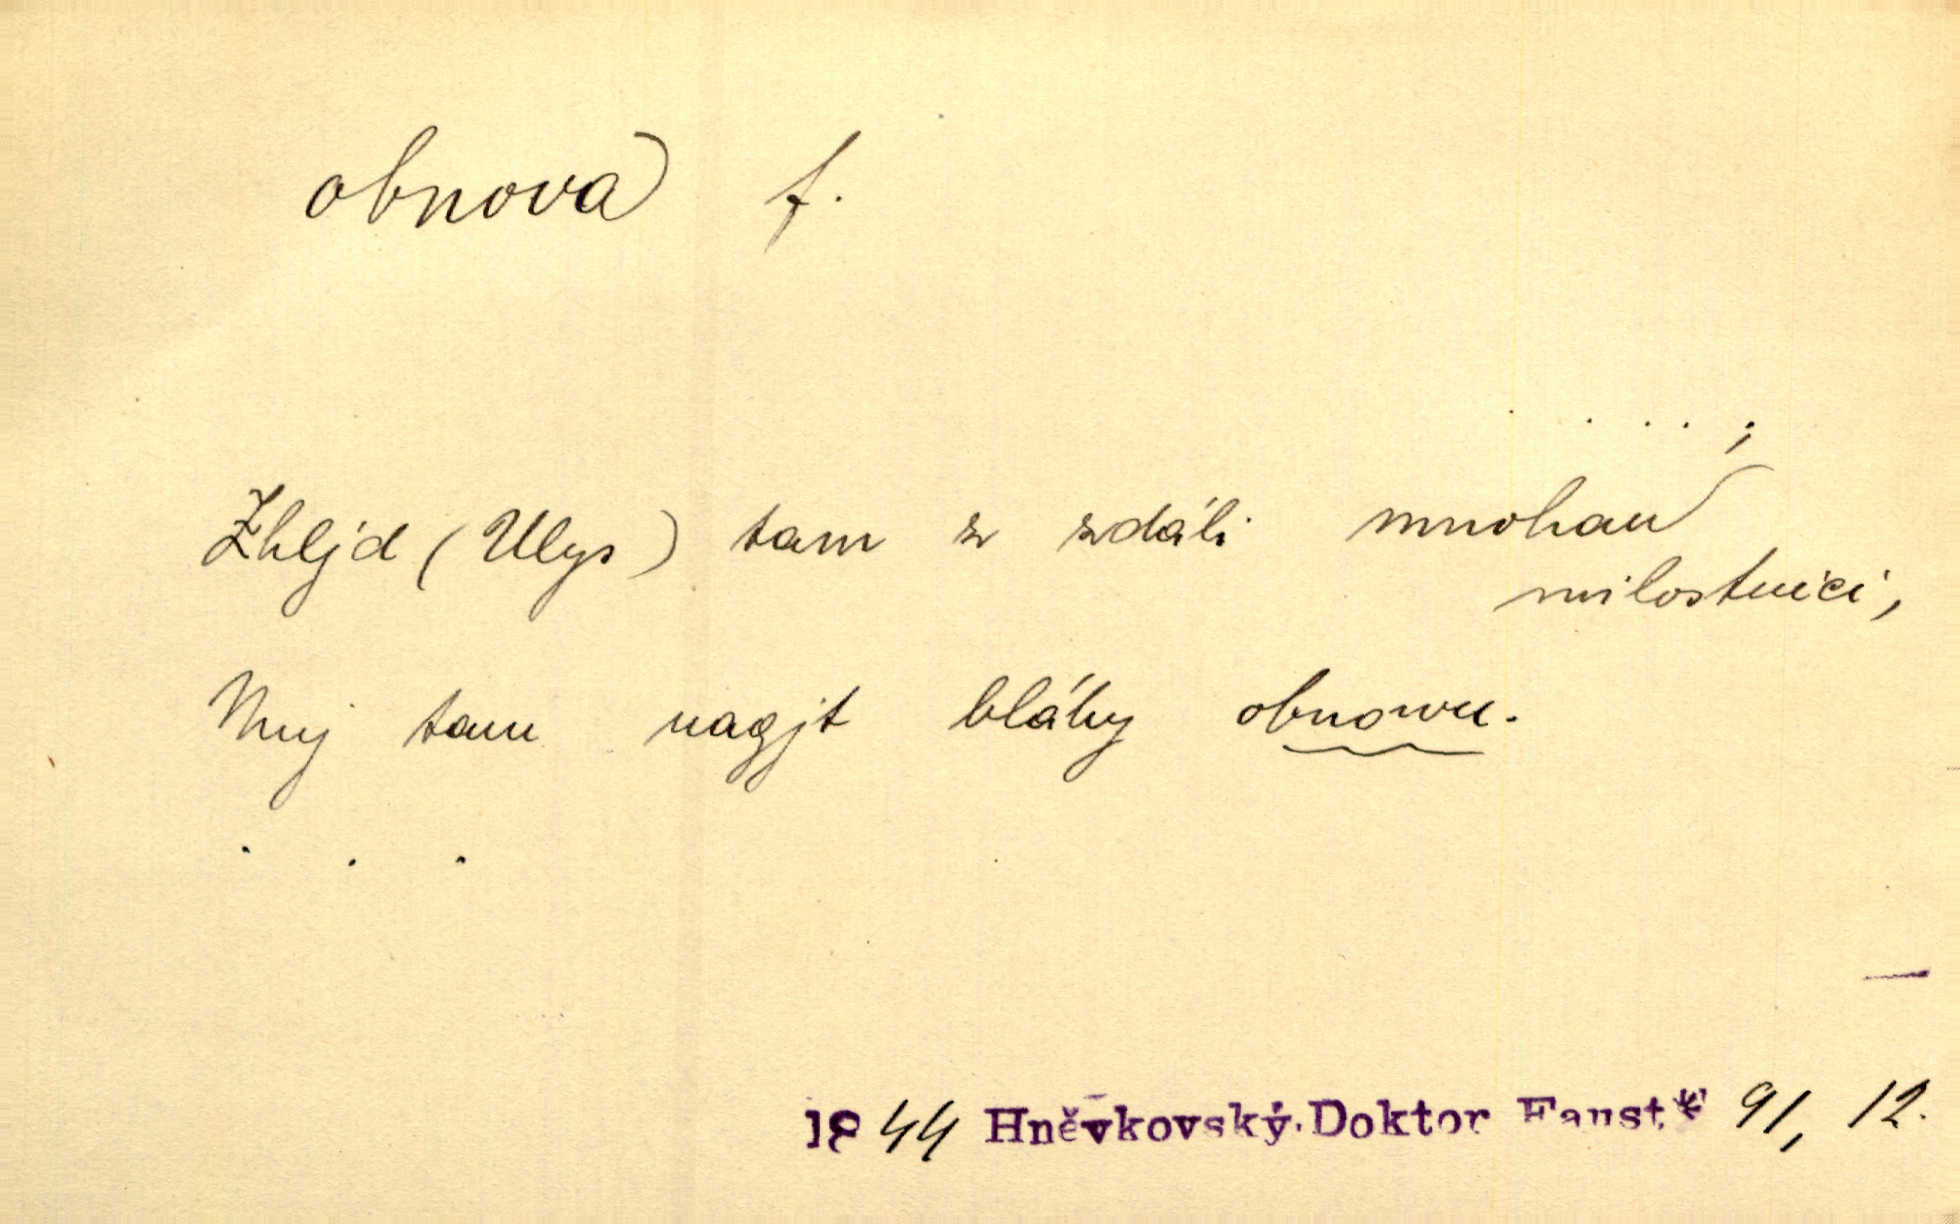 obnova f.
. . . . ;
Zhljd (Ulys) tam z zdáli mnohau
milostnici,
Mnj tam nagjt bláhy obnowu.
. . .
1844 Hněvkovský, Doktor Faust* 91, 12.